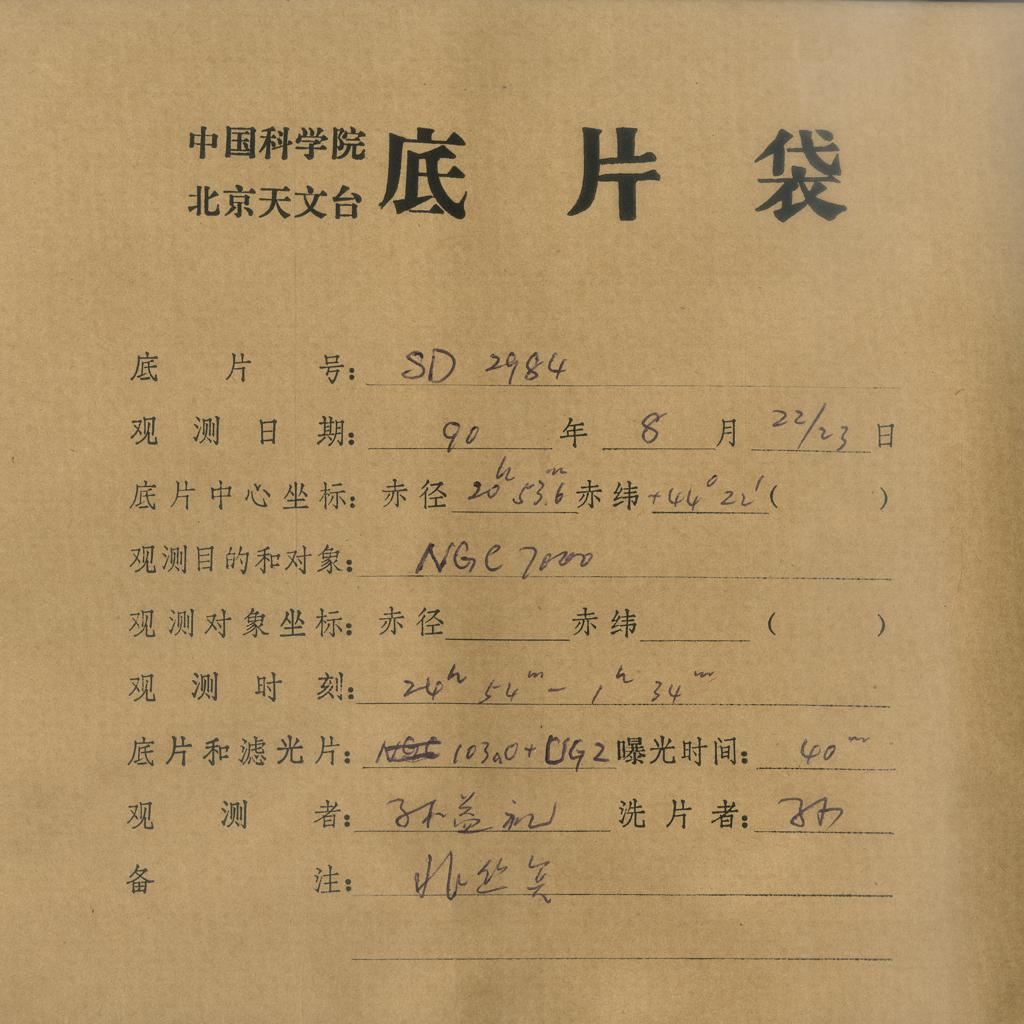 中国科学院
北京天文台
底片袋
底片号: SD 2984
观测日期: 90 年 8 月 22/23 日
底片中心坐标: 赤径 20h 53.6m 赤纬 +44° 22′ ( )
观测目的和对象: NGC 7000
观测对象坐标: 赤径 赤纬 ( )
观测时刻: 24h 54m - 1h 34m
底片和滤光片: NGC 103aO + UG2 曝光时间: 40m
观测者: 孙益礼 洗片者: 孙
备注: